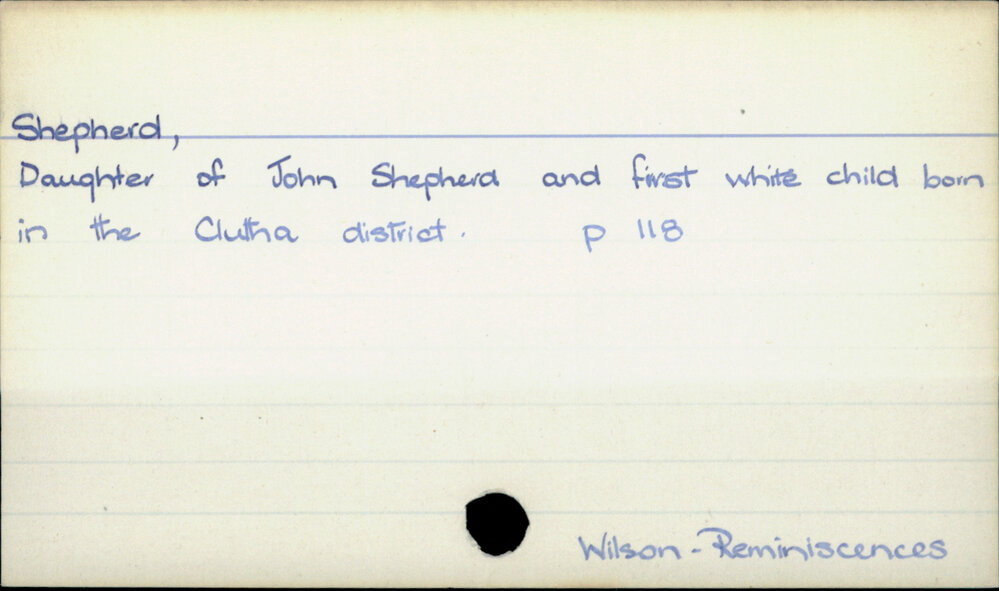 Shepherd,
Daughter of John Shepherd and first white child born
in the Clutha district. p 118
Wilson - Reminiscences